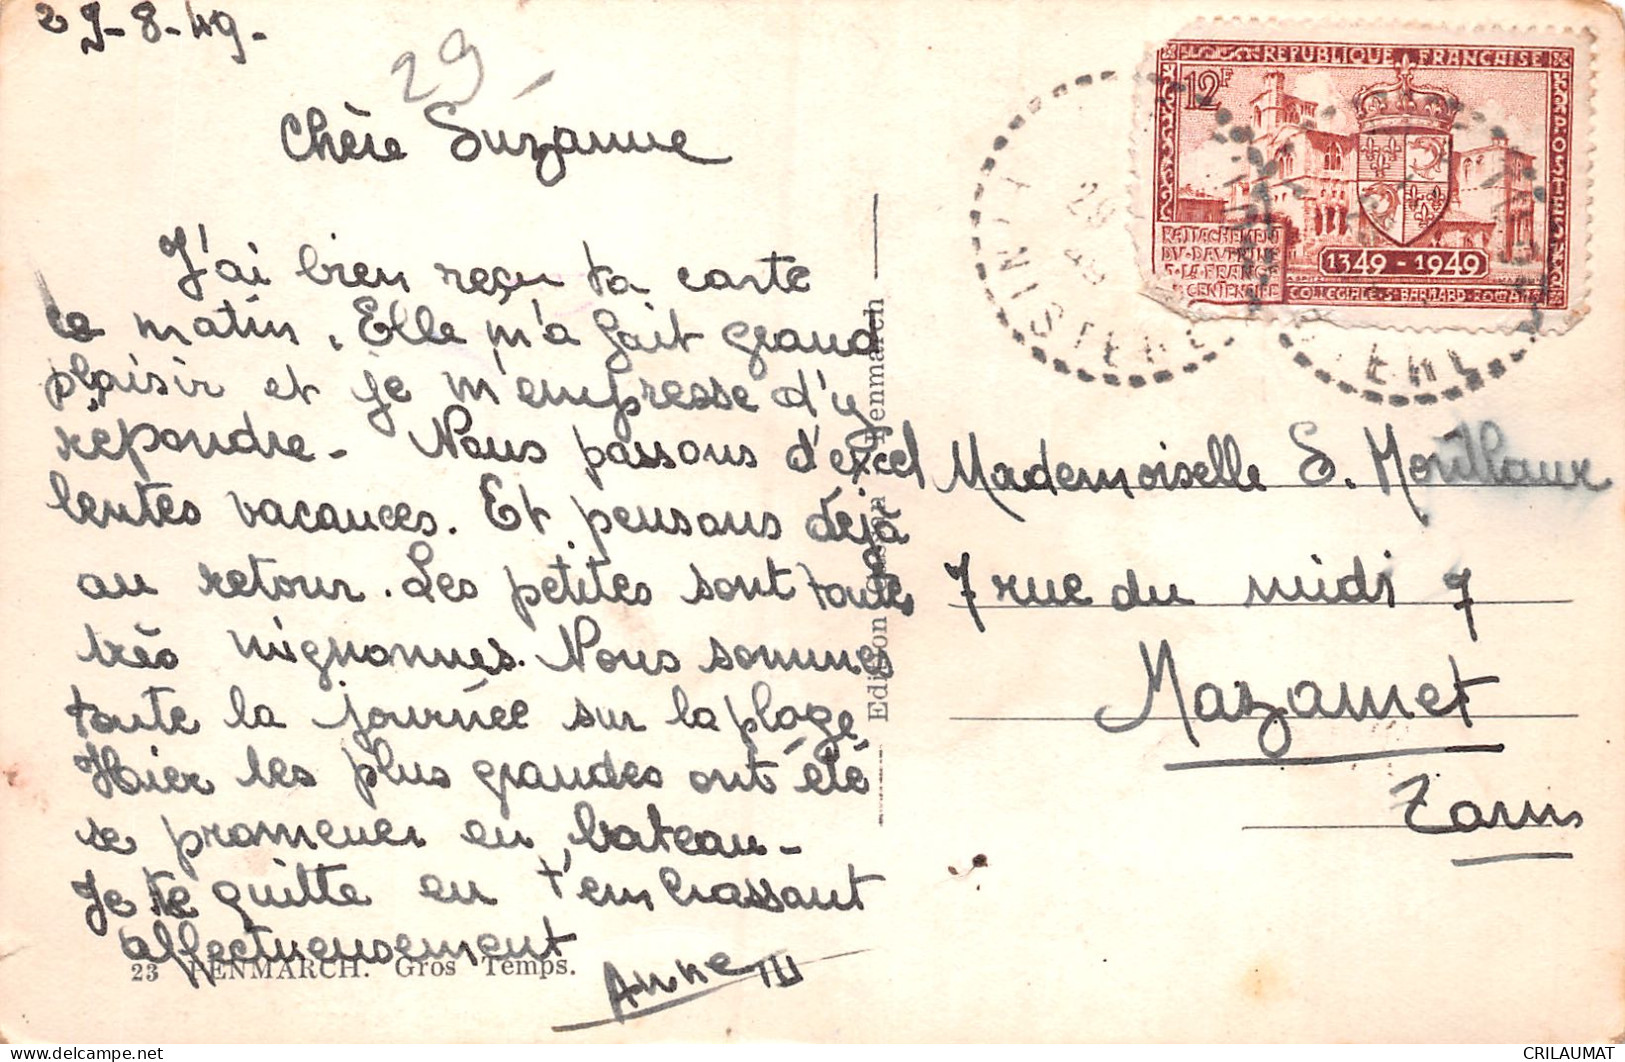 29-8-49-
29-
Chère Suzanne
J'ai bien reçu ta carte
ce matin. Elle m'a fait grand
plaisir et je m'empresse d'y
répondre - Nous passons d'excel
lentes vacances. Et pensons déjà
au retour. Les petites sont toutes
très mignonnes. Nous sommes
toute la journée sur la plage
Hier les plus grandes ont été
se promener en bateau -
Je te quitte en t'embrassant
affectueusement
Anne
23 PENMARCH. Gros Temps.
Edition Penmarch
REPUBLIQUE FRANCAISE
12F
POSTES
RATTACHEMENT
DU DAUPHINE
A LA FRANCE
CENTENAIRE
1349-1949
COLLEGIALE St BARNARD ROMANS
29
49
FINISTERE
Mademoiselle S. Mouillaux
7 rue du midi 7
Mazamet
Tarn
CRILAUMAT